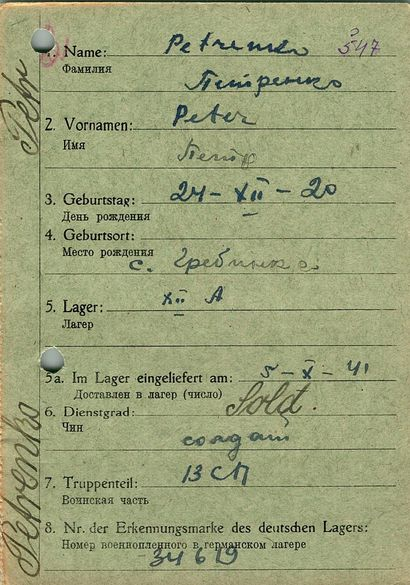 1. Name: Petrenko 547
Фамилия Петренко
2. Vornamen: Peter
Имя Петр
3. Geburtstag: 24-XII-20
День рождения
4. Geburtsort:
Место рождения
с. Гребинка
5. Lager: XII A
Лагер
5a. Im Lager eingeliefert am: 5-X-41
Доставлен в лагер (число)
6. Dienstgrad: Sold.
Чин солдат
7. Truppenteil: 13 СП
Воинская часть
8. Nr. der Erkennungsmarke des deutschen Lagers:
Номер военнопленного в германском лагере
34619
Petrenko Petr